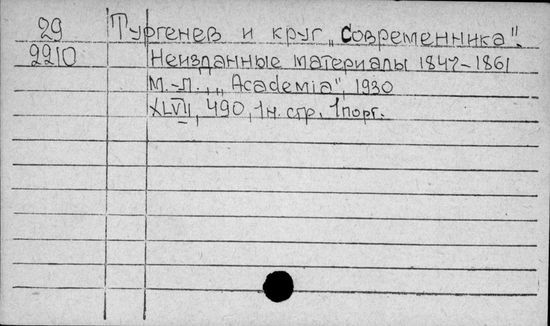 29 Тургенев и круг „Современника".
2210 Неизданные материалы 1847-1861
М.-Л., „Academia", 1930
XLVII, 490, 1 н. стр. 1 порт.